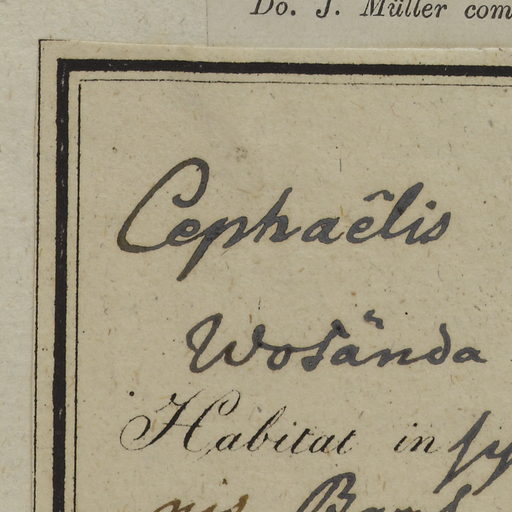 Do. J. Müller com
Cephaëlis
Wosända
Habitat in sy
nis Band